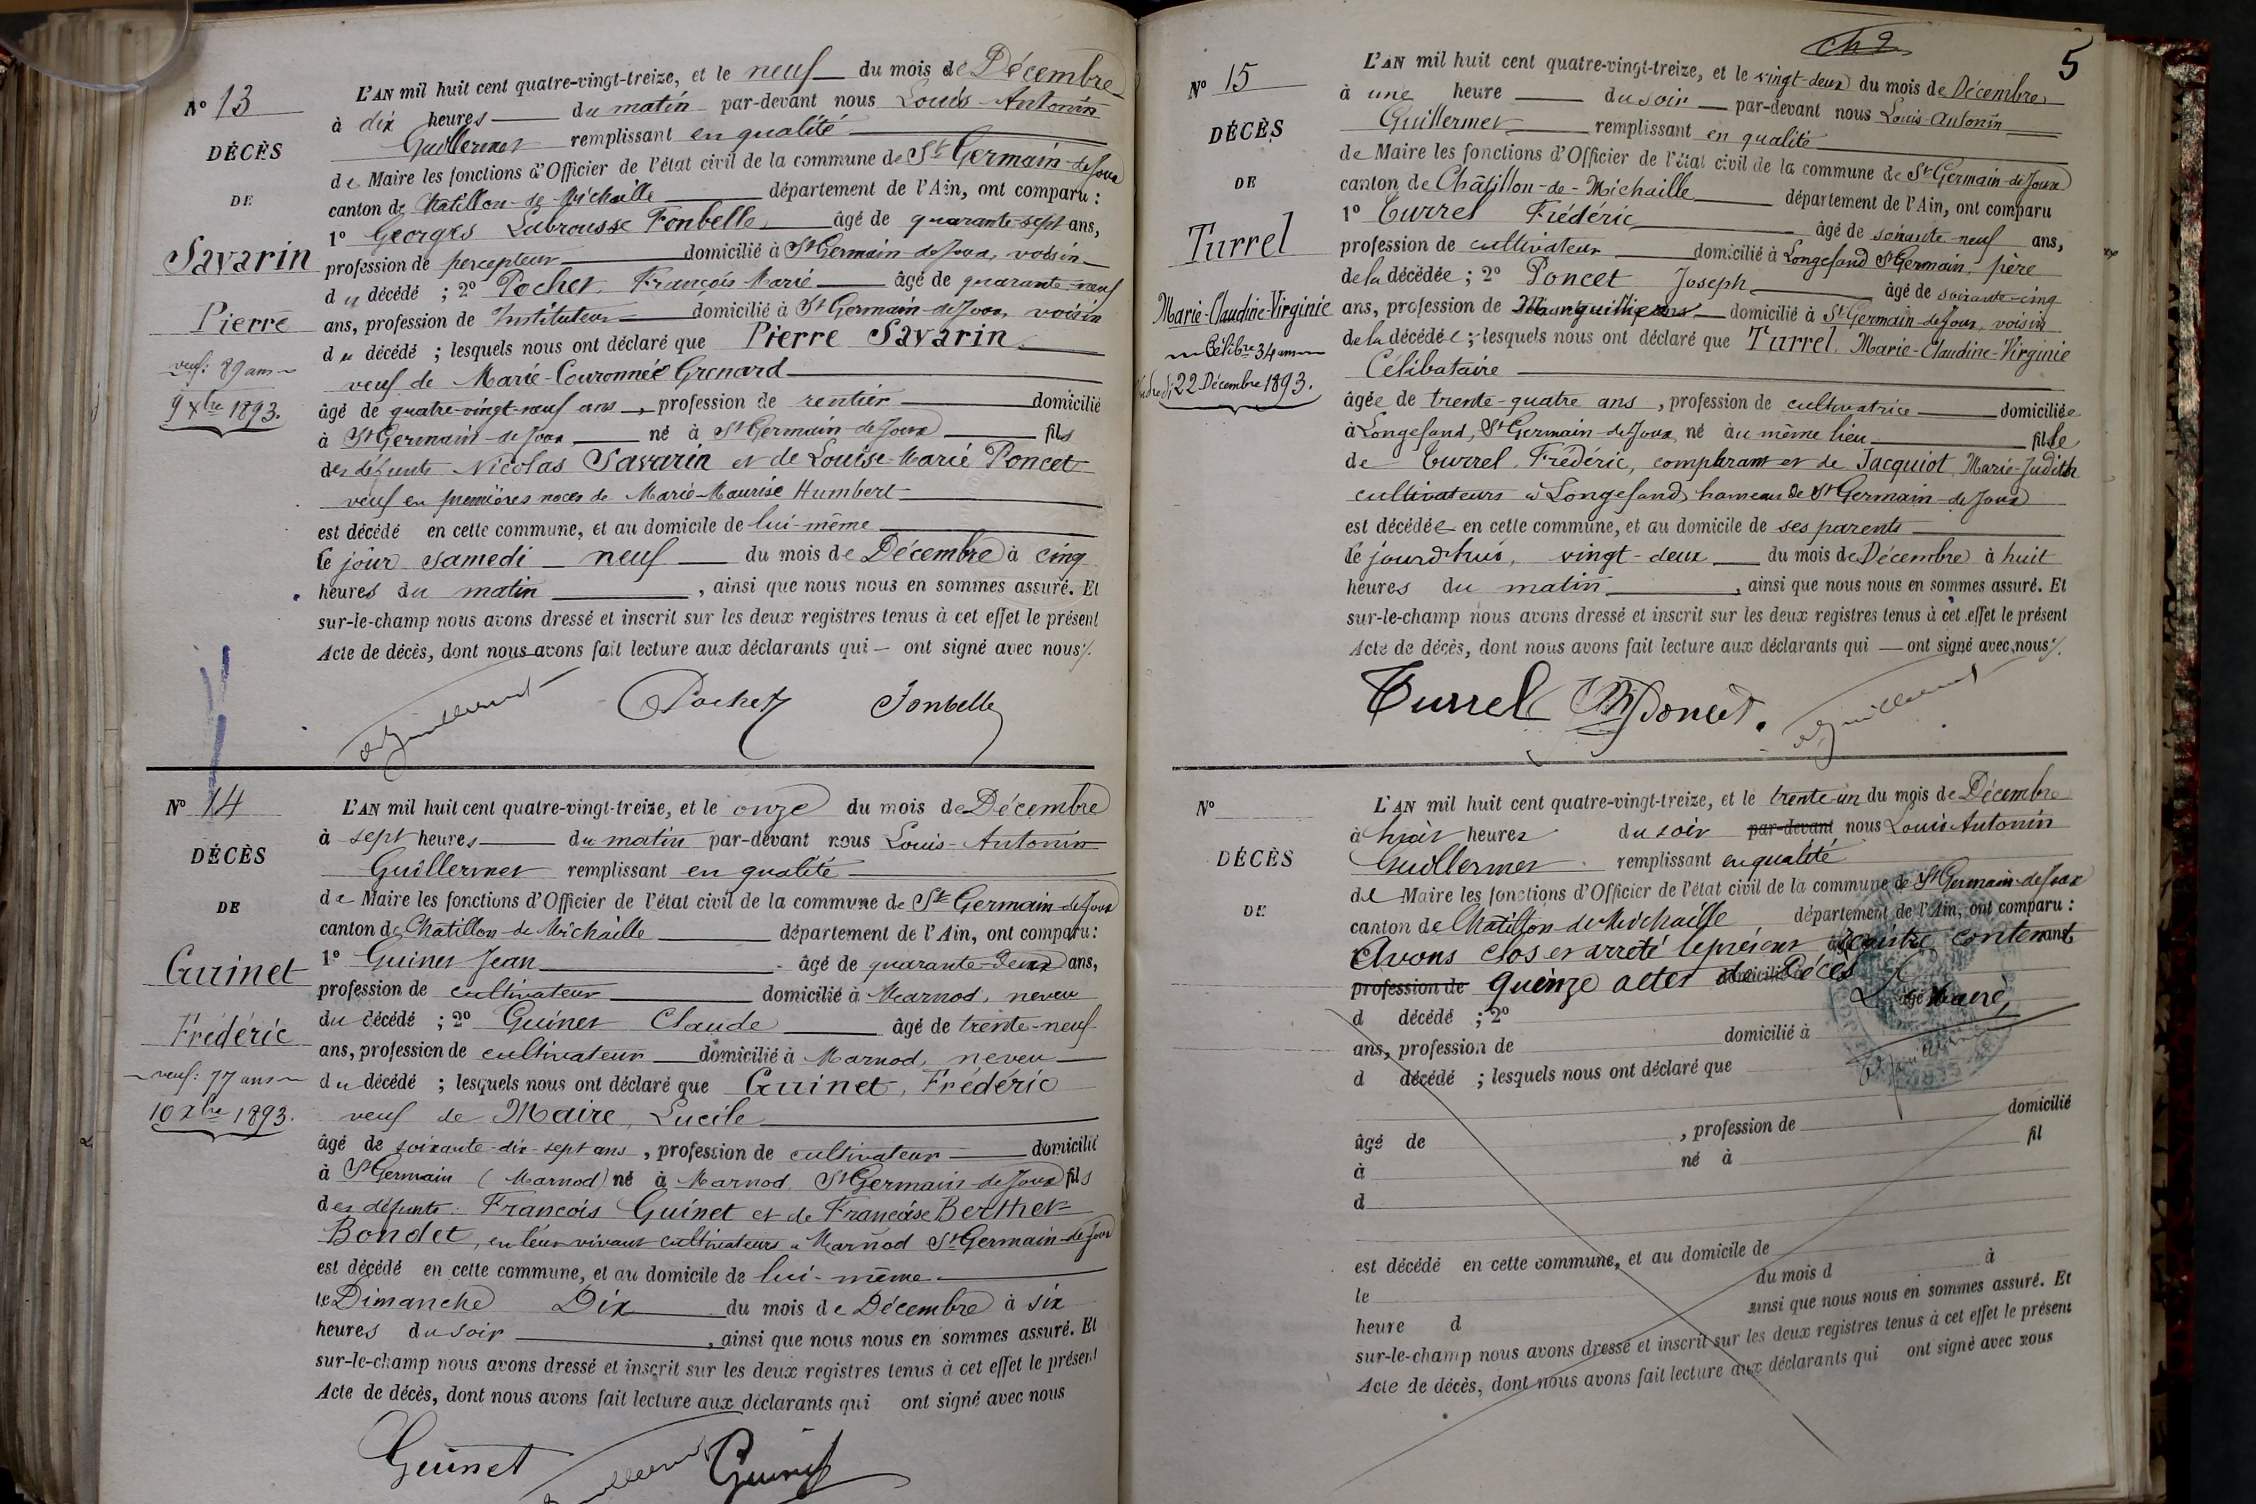 N° 13
DÉCÈS
DE
Savarin
Pierre
veuf: 89 ans
9 Xbre 1893.
L'AN mil huit cent quatre-vingt-treize, et le neuf du mois de Décembre
à dix heures du matin par-devant nous Louis-Antonin
Guillermet remplissant en qualité
de Maire les fonctions d'Officier de l'état civil de la commune de St Germain-de-Joux
canton de Chatillon-de-Michaille département de l'Ain, ont comparu :
1° Georges Labrousse Fonbelle, âgé de quarante-sept ans,
profession de percepteur domicilié à St Germain-de-Joux, voisin
du décédé ; 2° Pochet, François-Marie âgé de quarante-neuf
ans, profession de Instituteur domicilié à St Germain-de-Joux, voisin
du décédé ; lesquels nous ont déclaré que Pierre Savarin
veuf de Marie-Couronnée Grenard
âgé de quatre-vingt-neuf ans, profession de rentier domicilié
à St Germain-de-Joux né à St Germain-de-Joux fils
des défunts Nicolas Savarin et de Louise-Marie Poncet
veuf en premières noces de Marie-Maurise Humbert
est décédé en cette commune, et au domicile de lui-même
le jour samedi neuf du mois de Décembre à cinq
heures du matin, ainsi que nous nous en sommes assuré. Et
sur-le-champ nous avons dressé et inscrit sur les deux registres tenus à cet effet le présent
Acte de décès, dont nous avons fait lecture aux déclarants qui — ont signé avec nous.
Guillermet Pochet Fonbelle
N° 14
DÉCÈS
DE
Guinet
Frédéric
veuf: 77 ans
10 Xbre 1893.
L'AN mil huit cent quatre-vingt-treize, et le onze du mois de Décembre
à sept heures du matin par-devant nous Louis-Antonin
Guillermet remplissant en qualité
de Maire les fonctions d'Officier de l'état civil de la commune de St Germain-de-Joux
canton de Chatillon-de-Michaille département de l'Ain, ont comparu :
1° Guinet Jean âgé de quarante-deux ans,
profession de cultivateur domicilié à Marnod, neveu
du décédé ; 2° Guinet Claude âgé de trente-neuf
ans, profession de cultivateur domicilié à Marnod, neveu
du décédé ; lesquels nous ont déclaré que Guinet, Frédéric
veuf de Maire, Lucile
âgé de soixante-dix-sept ans, profession de cultivateur domicilié
à St Germain (Marnod) né à Marnod St Germain-de-Joux fils
des défunts François Guinet et de Françoise Berthet-
Bondet, en leur vivant cultivateurs à Marnod St Germain-de-Joux
est décédé en cette commune, et au domicile de lui-même
le Dimanche Dix du mois de Décembre à six
heures du soir, ainsi que nous nous en sommes assuré. Et
sur-le-champ nous avons dressé et inscrit sur les deux registres tenus à cet effet le présent
Acte de décès, dont nous avons fait lecture aux déclarants qui ont signé avec nous
Guinet Guillermet Guinet
5
N° 15
DÉCÈS
DE
Turrel
Marie-Claudine-Virginie
Célibre 34 ans
22 Décembre 1893.
L'AN mil huit cent quatre-vingt-treize, et le vingt-deux du mois de Décembre
à une heure du soir par-devant nous Louis-Antonin
Guillermet remplissant en qualité
de Maire les fonctions d'Officier de l'état civil de la commune de St Germain-de-Joux
canton de Châtillon-de-Michaille département de l'Ain, ont comparu
1° Turrel Frédéric âgé de soixante-neuf ans,
profession de cultivateur domicilié à Longefand St Germain, père
de la décédée ; 2° Poncet Joseph âgé de soixante-cinq
ans, profession de domicilié à St Germain-de-Joux, voisin
de la décédée ; lesquels nous ont déclaré que Turrel, Marie-Claudine-Virginie
Célibataire
âgée de trente-quatre ans, profession de cultivatrice domiciliée
à Longefand, St Germain-de-Joux, né au même lieu fille
de Turrel, Frédéric, comparant et de Jacquiot, Marie-Judith
cultivateurs à Longefand, hameau de St Germain-de-Joux
est décédée en cette commune, et au domicile de ses parents
le jourd'hui, vingt-deux du mois de Décembre à huit
heures du matin, ainsi que nous nous en sommes assuré. Et
sur-le-champ nous avons dressé et inscrit sur les deux registres tenus à cet effet le présent
Acte de décès, dont nous avons fait lecture aux déclarants qui — ont signé avec nous.
Turrel Poncet. Guillermet
N°
DÉCÈS
DE
L'AN mil huit cent quatre-vingt-treize, et le trente-un du mois de Décembre
à huit heures du soir par-devant nous Louis Antonin
Guillermet remplissant en qualité
de Maire les fonctions d'Officier de l'état civil de la commune de St Germain-de-Joux
canton de Chatillon-de-Michaille département de l'Ain, ont comparu :
Avons clos et arrêté le présent registre contenant
profession de quinze actes de Décès
d décédé ; 2° Le Maire,
ans, profession de domicilié à
d décédé ; lesquels nous ont déclaré que
âgé de , profession de domicilié
à né à fil
d
est décédé en cette commune, et au domicile de
le du mois d à
heure d ainsi que nous nous en sommes assuré. Et
sur-le-champ nous avons dressé et inscrit sur les deux registres tenus à cet effet le présent
Acte de décès, dont nous avons fait lecture aux déclarants qui ont signé avec nous